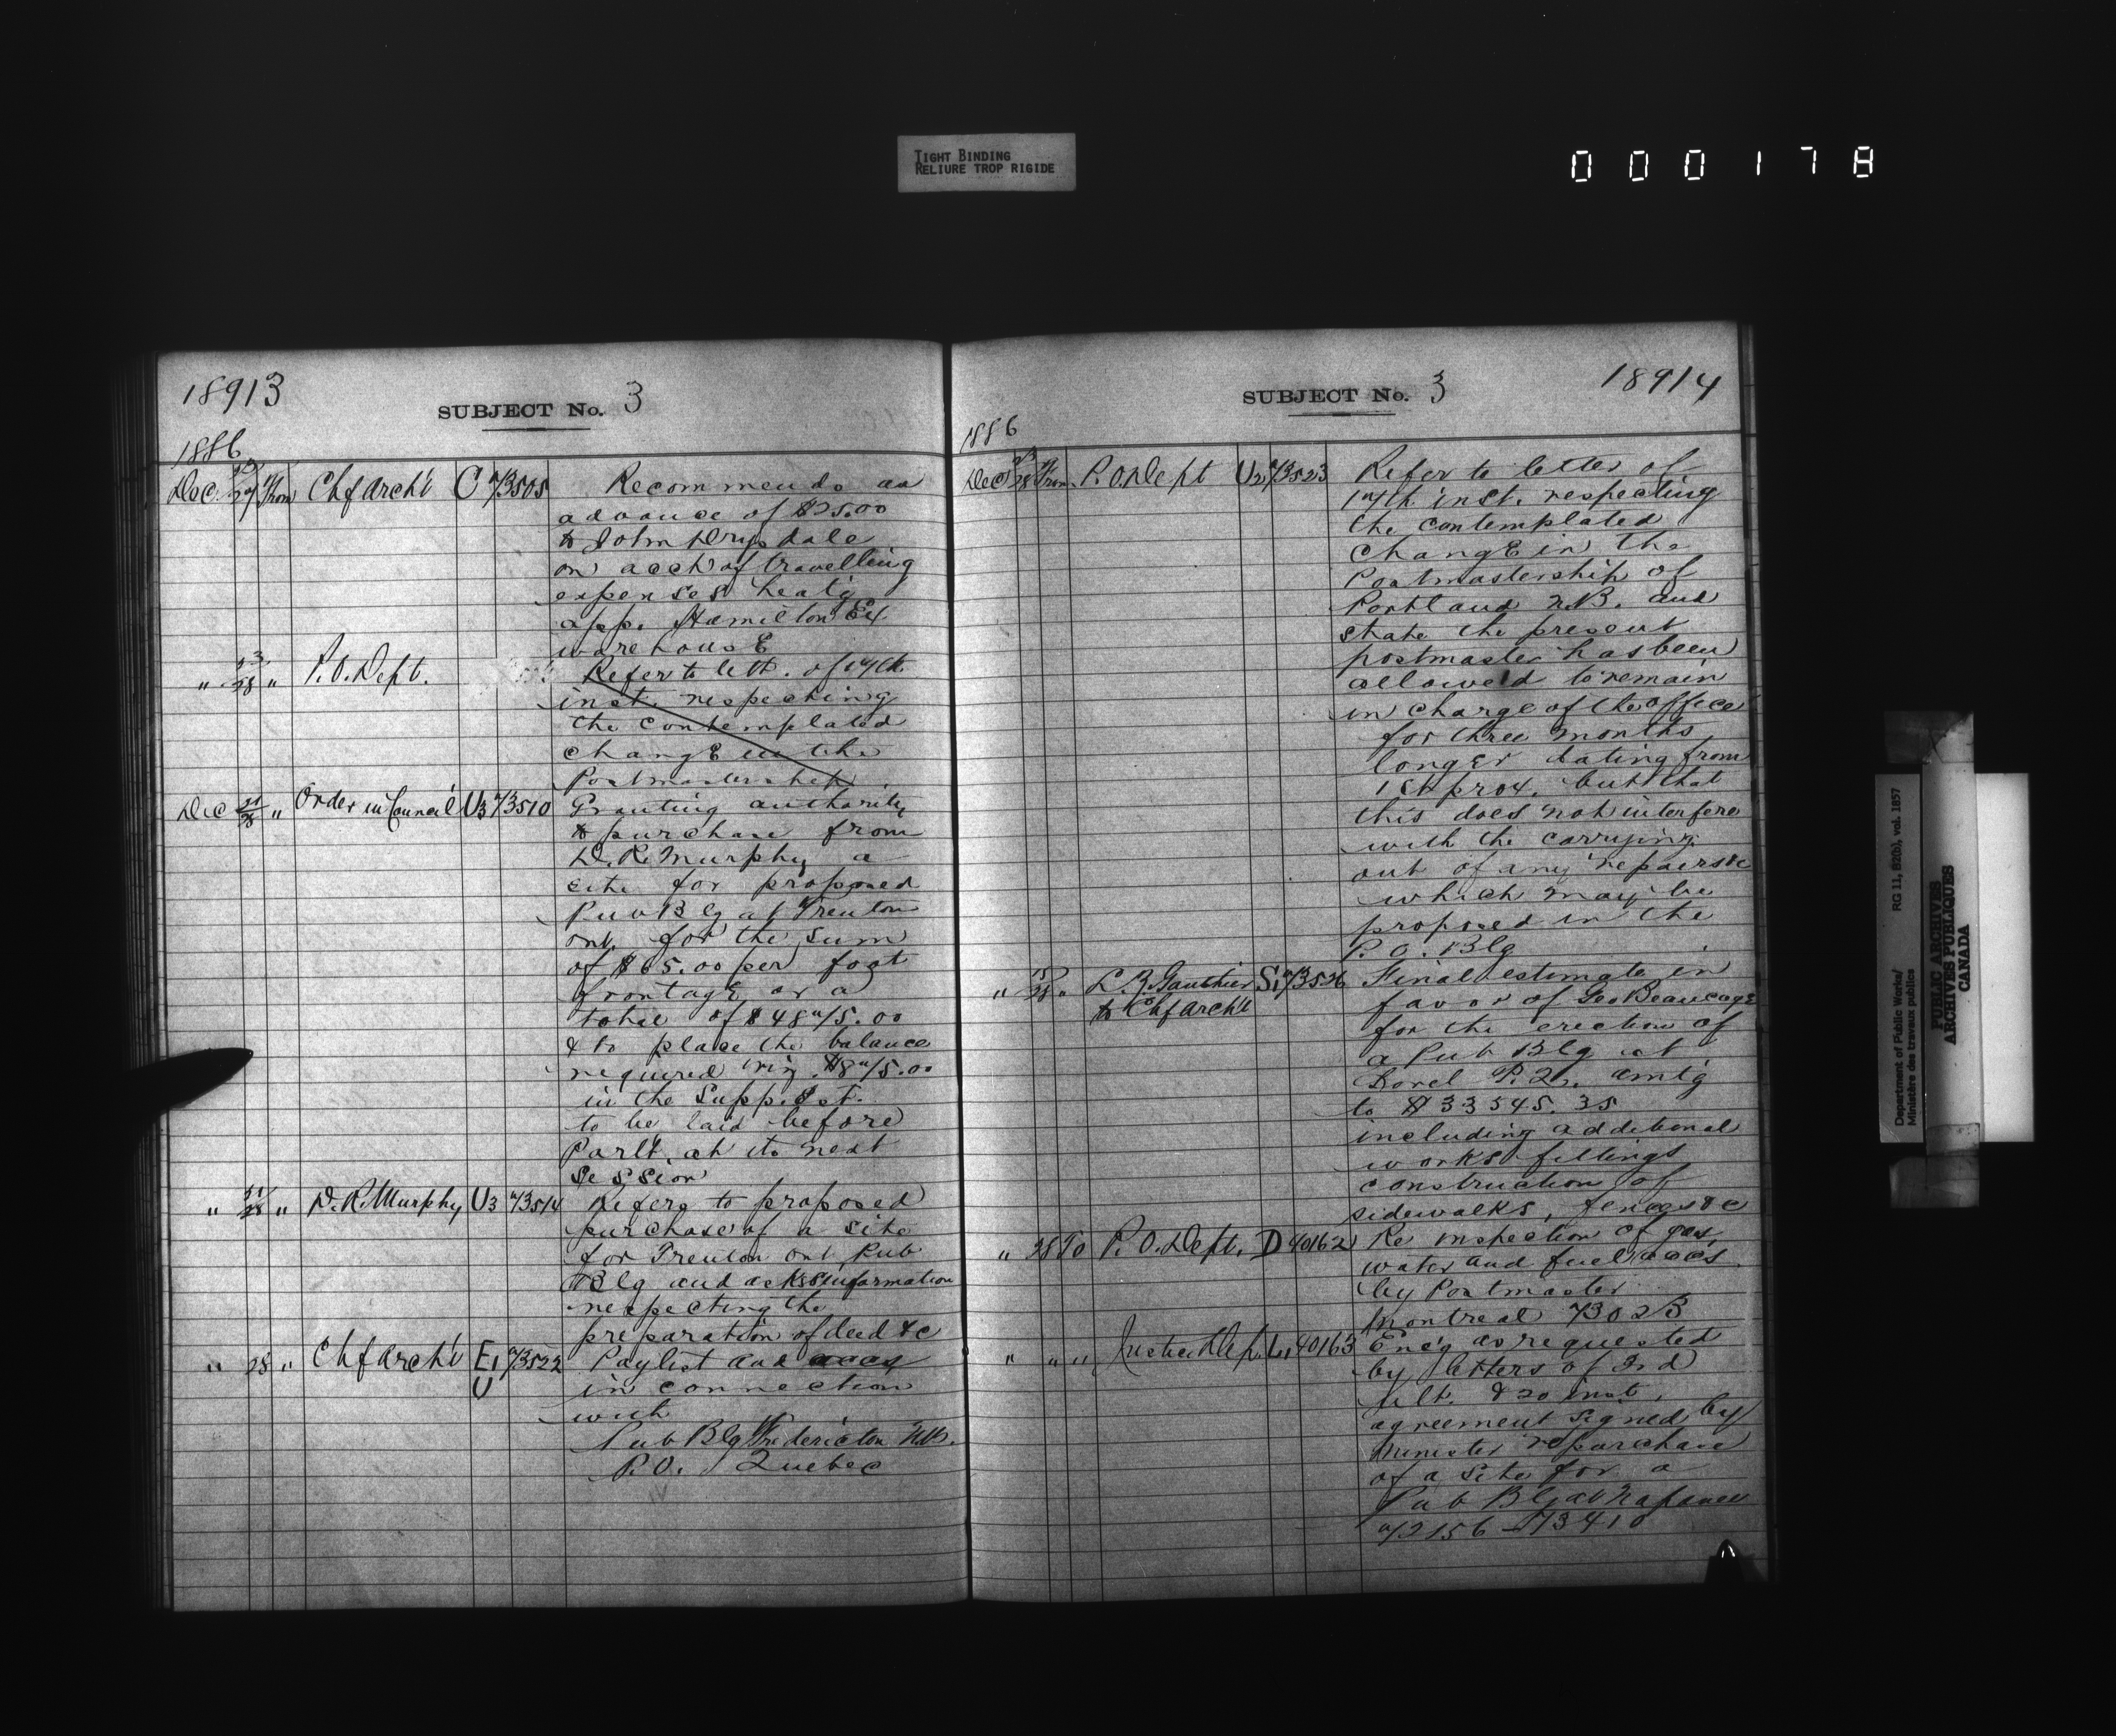 TIGHT BINDING
RELIURE TROP RIGIDE
000178
18913
SUBJECT No. 3
1886
Dec. 27 From Chf Archt C 73505 Recommends an
advance of $25.00
to John Drysdale
on acct of travelling
expenses heatg
app. Hamilton Ex
warehousE
" 23/28 " P.O. Dept. Refer to lett. of 17th
inst. respecting
the contemplated
changE in the
Postmastership
Dec 21/28 " Order in Council U3 73510 Granting authority
to purchase from
D. R. Murphy a
site for proposed
Pub Blg at Trenton
Ont. for the sum
of $65.00 per foot
frontagE or a
total of $4875.00
& to place the balance
required viz. $875.00
in the Supp. Est.
to be laid before
Parlt. at its next
Session
" 21/28 " D. R. Murphy U3 73514 Referg to proposed
purchase of a site
for Trenton Ont Pub
Blg and asks information
respecting the
preparation of deed &c
" 28 " Chf Archt E1 U 73522 Paylist and accs
in connection
with
Pub Blg Fredericton NB.
P.O. Quebec
18914
SUBJECT No. 3
1886
Dec 23/28 From P.O. Dept U2 73523 Refer to letter of
17th inst. respecting
the contemplated
changE in the
Postmastership of
Portland N.B. and
state the present
postmaster has been
allowed to remain
in charge of the office
for three months
longer dating from
1st prox. but that
this does not interfere
with the carrying
out of any repairs &c
which may be
proposed in the
P.O. Blg
" 28 " L. Z. Gauthier S1 73526 Final estimate in
to Chf Archt favor of Geo Beaucage
for the erection of
a Pub Blg at
Sorel P.Q. amtg
to $33545.35
including additional
works fittings
construction of
sidewalks, fences &c
" 28 To P.O. Dept. D 40162 Re inspection of gas,
water and fuel accs
by Postmaster
Montreal 73023
" " " Justice Dep. L1 40163 Encg as requested
by letters of 3rd
ult. & 20 inst,
agreement signed by
Minister re purchase
of a site for a
Pub Blg at Napanee
72156 - 73410
Department of Public Works/ RG 11, B2(b), vol. 1857
Ministère des travaux publics
PUBLIC ARCHIVES
ARCHIVES PUBLIQUES
CANADA